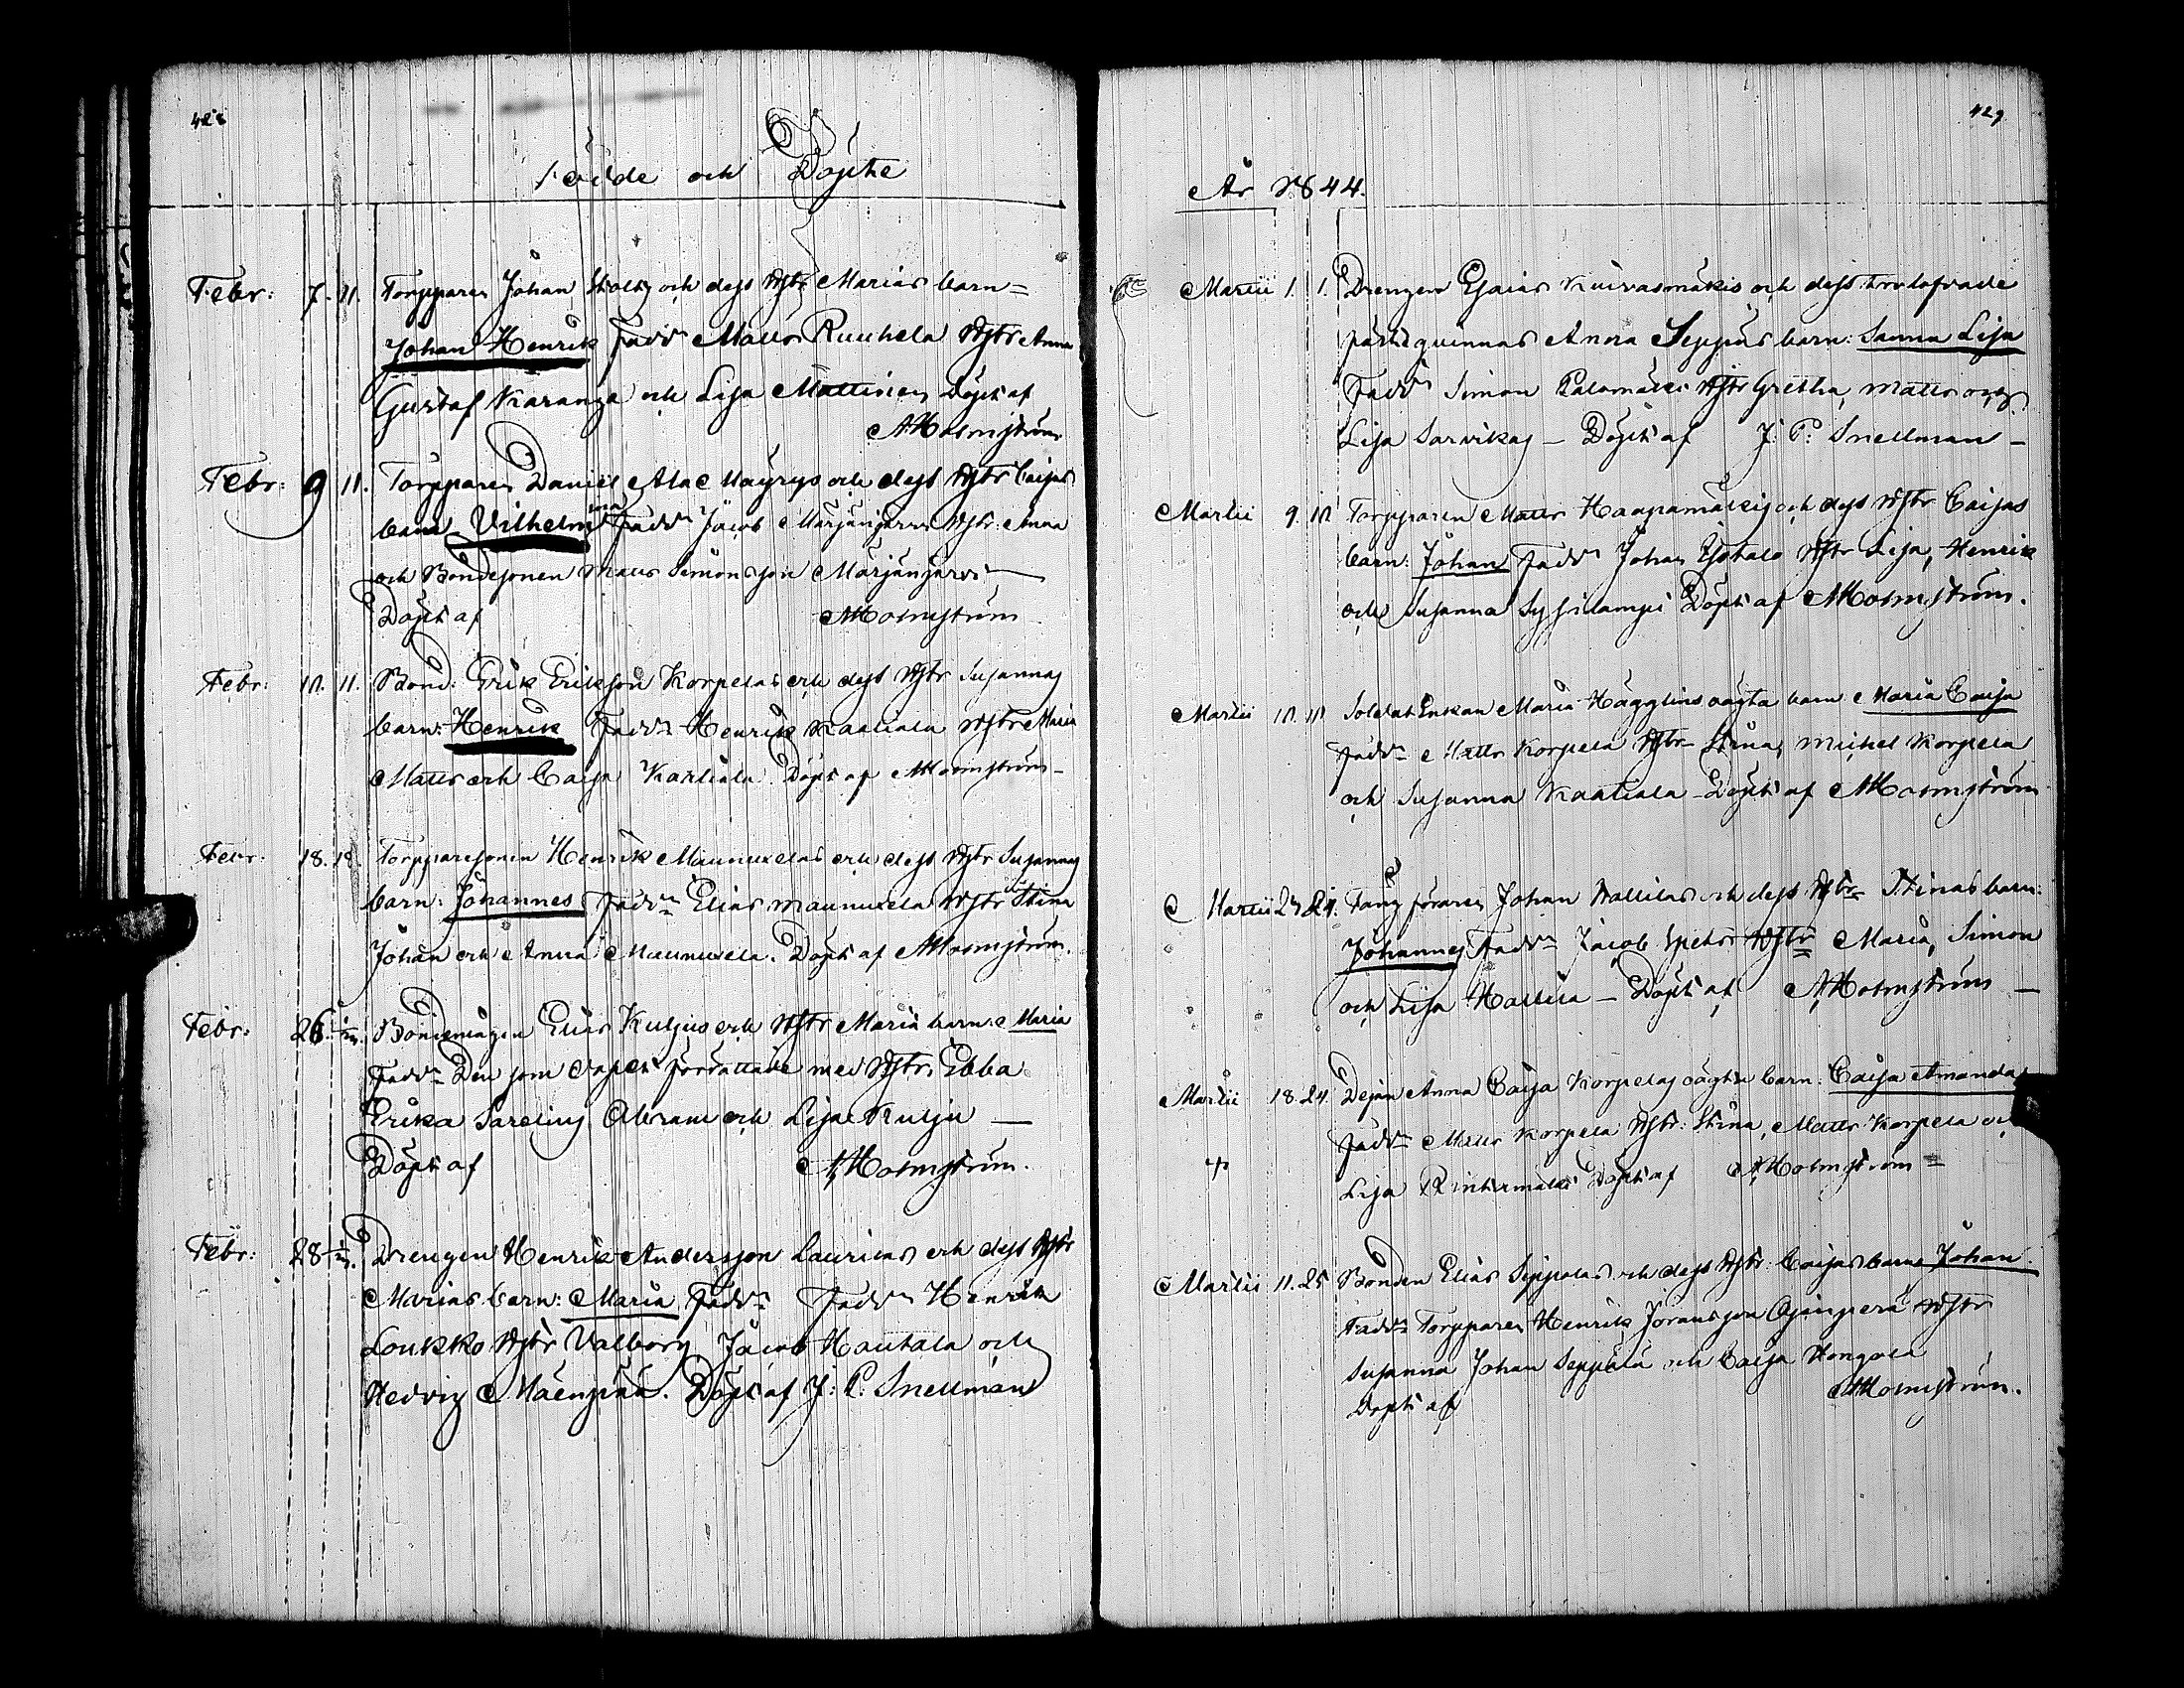 428
Födde och Döpte
Febr: 7. 11. Torpparen Johan Stolts och dess Hstr Marias barn=
Johan Henrik Fadd: Matts Ruuhela Hstr Anna
Gustaf Karanga och Lisa Mattinen Döpt af
AHolmström
Febr: 9 11. Torpparen Daniel Ala Mäyrys och dess Hstr Caisas
barn Vilhelmina Fadd: Jacob Märjänjärvi Hstr: Anna
och Bondesonen Matts Simonsson Märjänjärvi —
Döpt af AHolmström
Febr: 10. 11. Bond: Erik Eriksson Korpelas och dess Hstr Susannas
barn: Henrik Fadd: Henrik Kaatiala Hstr Maria
Matts och Caisa Kaatiala. Döpt af AHolmström—
Febr: 18. 18. Torpparesonen Henrik Maunuxelas och dess Hstr Susannas
barn: Johannes Fadd: Elias Maunuxela Hstr Stina
Johan och Anna Maunuxela. Döpt af AHolmström.
Febr: 26. Bondemågen Elias Kuljus och Hstr Maria barn: Maria
Fadd: Den som Dopet förrättade med Hstr: Ebba
Erika Sarelius Abram och Lisa Kulju —
Döpt af AHolmström.
Febr: 28 Drengen Henrik Andersson Laurilas och dess Hstr
Marias barn: Maria Fadd: Fadd: Henrik
Loukko Hstr Valborg Jacob Hautala och
Hedvig Mäenpää. Döpt af J: P. Snellman
429
År 1844.
Martii 1. 1. Drengen Esaias Kuivasmäkis och dess trolofvade
pärtsqvinnas Anna Seppäs barn: Sanna Lisa
Fadd: Simon Palomäki Hstr Gretha, Matts och
Lisa Sarvikas — Döpt af J: P: Snellman —
Martii 9. 10 Torpparen Matts Haapamäkis och dess Hstr Caisas
barn: Johan Fadd: Johan Ylotalo Hstr Lisa, Henrik
och Susanna Sysilampi Döpt af AHolmström.
Martii 10. 10 Soldat Enkan Maria Hägglins oägta barn Maria Caisa
Fadd: Matts Korpela Hstr Stina, Michel Korpela
och Susanna Kaatiala Döpt af AHolmström
Martii 23 24. Johan Hallilas och dess Hstr Stinas barn:
Johannes Fadd: Jacob Hstr Maria, Simon
och Lisa Hallila — Döpt af AHolmström —
Martii 18. 24. Pejan Anna Caisa Korpelas oägta barn: Caisa Amanda
Fadd: Matts Korpela Hstr: Stina, Matts Korpela och
Lisa Rintamäki Döpt af AHolmström =
Martii 11. 25 Bonden Elias Seppälas och dess Hstr: Caisas barn Johan.
Fadd: Torpparen Henrik Göransson Ojanperä Hstr
Susanna Johan Seppälä och Caisa Hongola
Döpt af AHolmström.